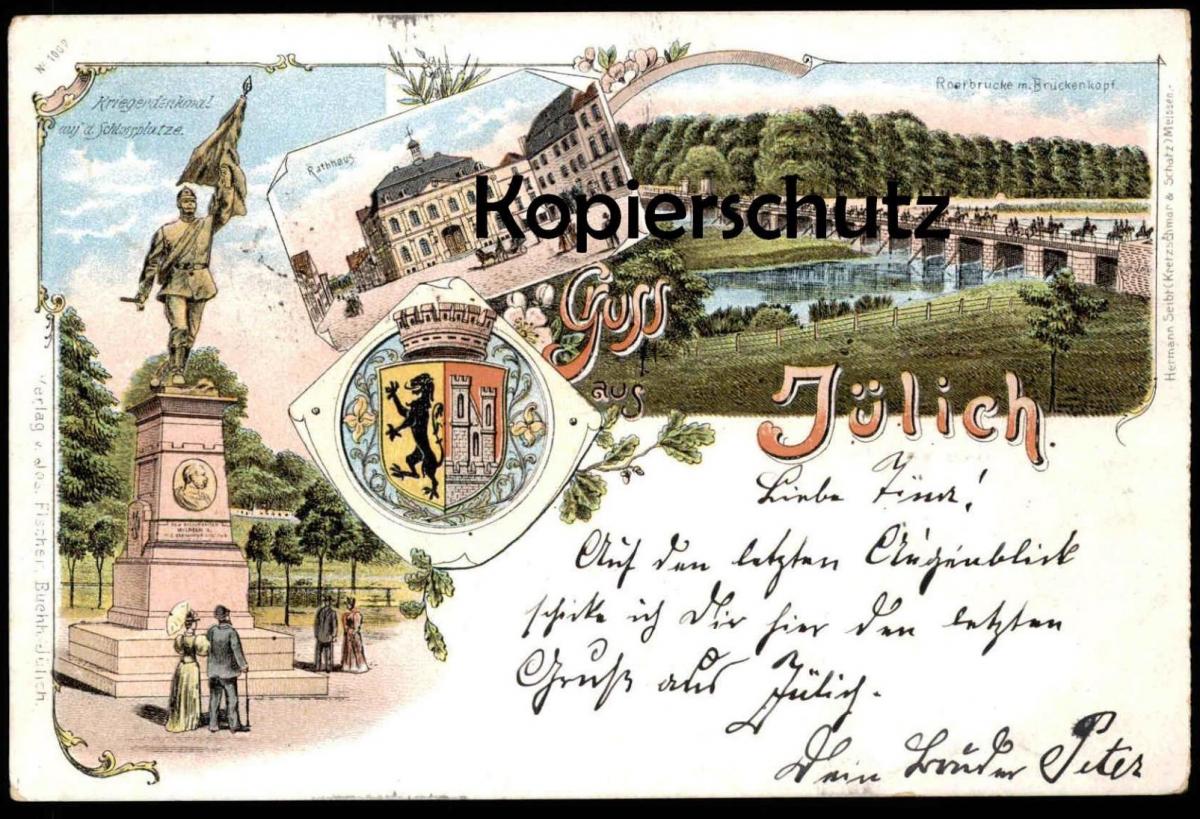 № 1907
Kriegerdenkmal
auf d. Schlossplatze.
Rathhaus
Roerbrücke m. Brückenkopf.
Kopierschutz
Gruss
aus
Jülich.
Liebe Tina!
Auf den letzten Augenblick
schicke ich Dir hier den letzten
Gruß aus Jülich.
Dein Bruder Peter
Verlag v. Jos. Fischer, Buchh. Jülich.
Hermann Seibt (Kretzschmar & Schatz) Meissen.
WILHELM I.